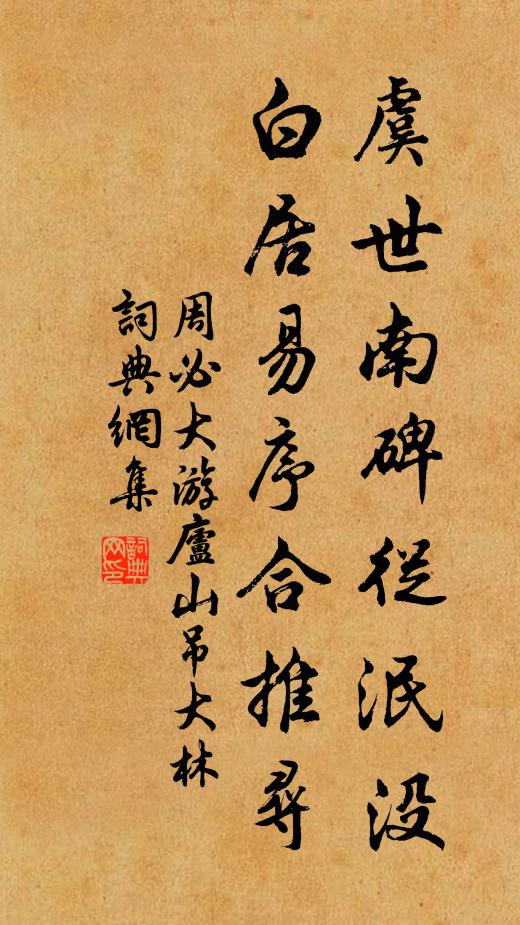 虞世南碑從泯没
白居易序合推尋
周必大游廬山吊大林
詞典網集
詞典网印